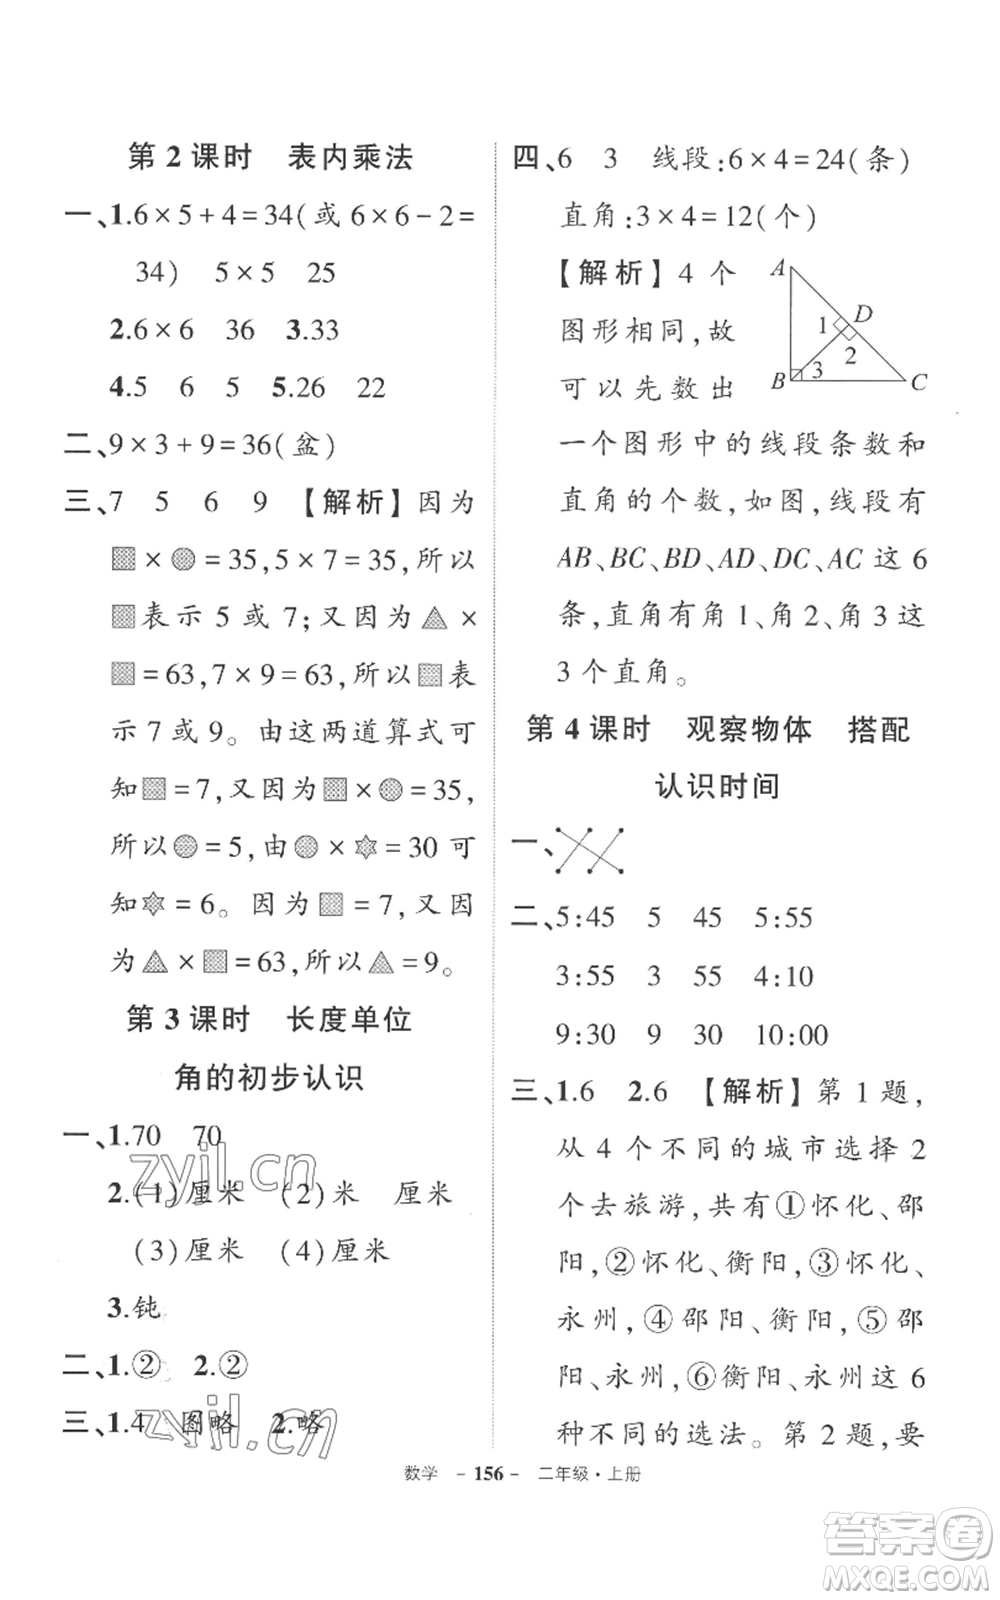 第2课时 表内乘法
一、1.6×5+4=34(或6×6-2=
34) 5×5 25
2.6×6 36 3.33
4.5 6 5 5.26 22
二、9×3+9=36(盆)
三、7 5 6 9 【解析】因为
×=35,5×7=35,所以
表示5或7;又因为×
=63,7×9=63,所以表
示7或9。由这两道算式可
知=7,又因为×=35,
所以=5,由×=30可
知=6。因为=7,又因
为×=63,所以=9。
第3课时 长度单位
角的初步认识
一、1.70 70
2.(1)厘米 (2)米 厘米
(3)厘米 (4)厘米
3.钝
二、1.② 2.②
三、1.4 图略 2.略
四、6 3 线段:6×4=24(条)
直角:3×4=12(个)
【解析】4个
图形相同,故
可以先数出
A
1
D
2
B
3
C
一个图形中的线段条数和
直角的个数,如图,线段有
AB、BC、BD、AD、DC、AC这6
条,直角有角1、角2、角3这
3个直角。
第4课时 观察物体 搭配
认识时间
一、
二、5:45 5 45 5:55
3:55 3 55 4:10
9:30 9 30 10:00
三、1.6 2.6 【解析】第1题,
从4个不同的城市选择2
个去旅游,共有①怀化、邵
阳,②怀化、衡阳,③怀化、
永州,④邵阳、衡阳,⑤邵
阳、永州,⑥衡阳、永州这6
种不同的选法。第2题,要
数学 -156- 二年级·上册
zyjl.cn
zyjl.cn
答案卷
MXQE.COM